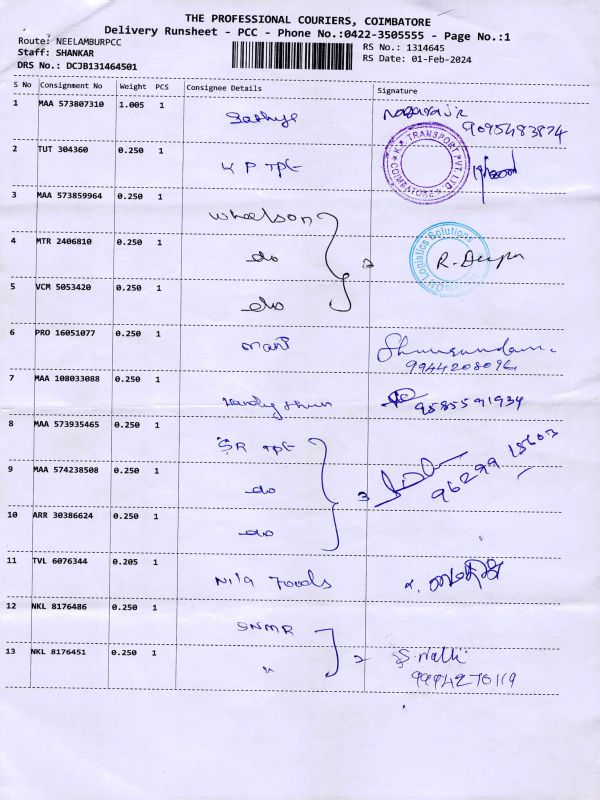 THE PROFESSIONAL COURIERS, COIMBATORE
Delivery Runsheet - PCC - Phone No.:0422-3505555 - Page No.:1
Route: NEELAMBURPCC
Staff: SHANKAR
DRS No.: DCJB131464501
RS No.: 1314645
RS Date: 01-Feb-2024
S No Consignment No Weight PCS Consignee Details Signature
1 MAA 573807310 1.005 1 Sathya Nagaraj R
9095483874
2 TUT 304360 0.250 1 K P TPT
K.P. TRANSPORT PVT. LTD. COIMBATORE
3 MAA 573859964 0.250 1 Wheelson
4 MTR 2406810 0.250 1 do 3 R. Deepa
Logistics Solutions
5 VCM 5053420 0.250 1 do
6 PRO 16051077 0.250 1 mani
7 MAA 108033088 0.250 1 9585591934
8 MAA 573935465 0.250 1 SR TPT
9 MAA 574238508 0.250 1 do 3 96299 15603
10 ARR 30386624 0.250 1 do
11 TVL 6076344 0.205 1 Nila Foods
12 NKL 8176486 0.250 1 SNMR
13 NKL 8176451 0.250 1 " 2 S. Nalli
9994270119